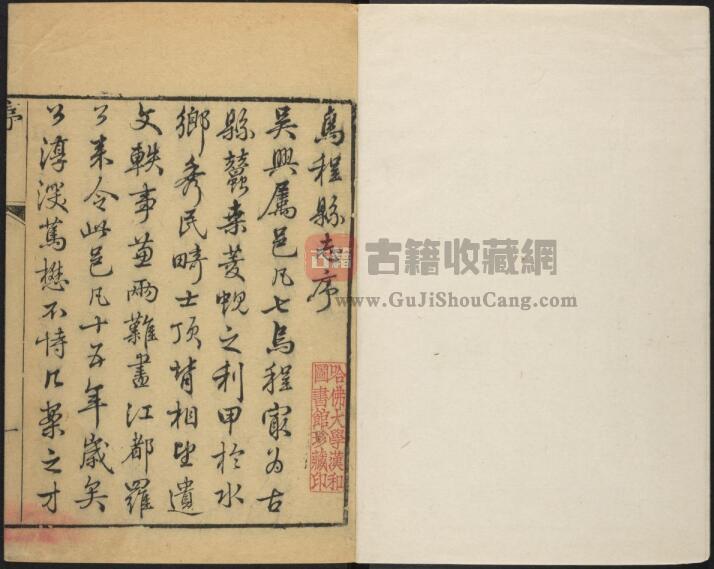 烏程縣志序
吳興屬邑凡七烏程宼為古
縣蠶桒菱蜆之利甲於水
鄉秀民畸士頂背相望遺
文軼事蓋兩難盡江都羅
公来令此邑凡十五年歲矣
公淳淡篤懋不恃
之才
序
一
哈佛大學漢和
圖書館珍藏印
古籍收藏網
www.GuJiShouCang.com